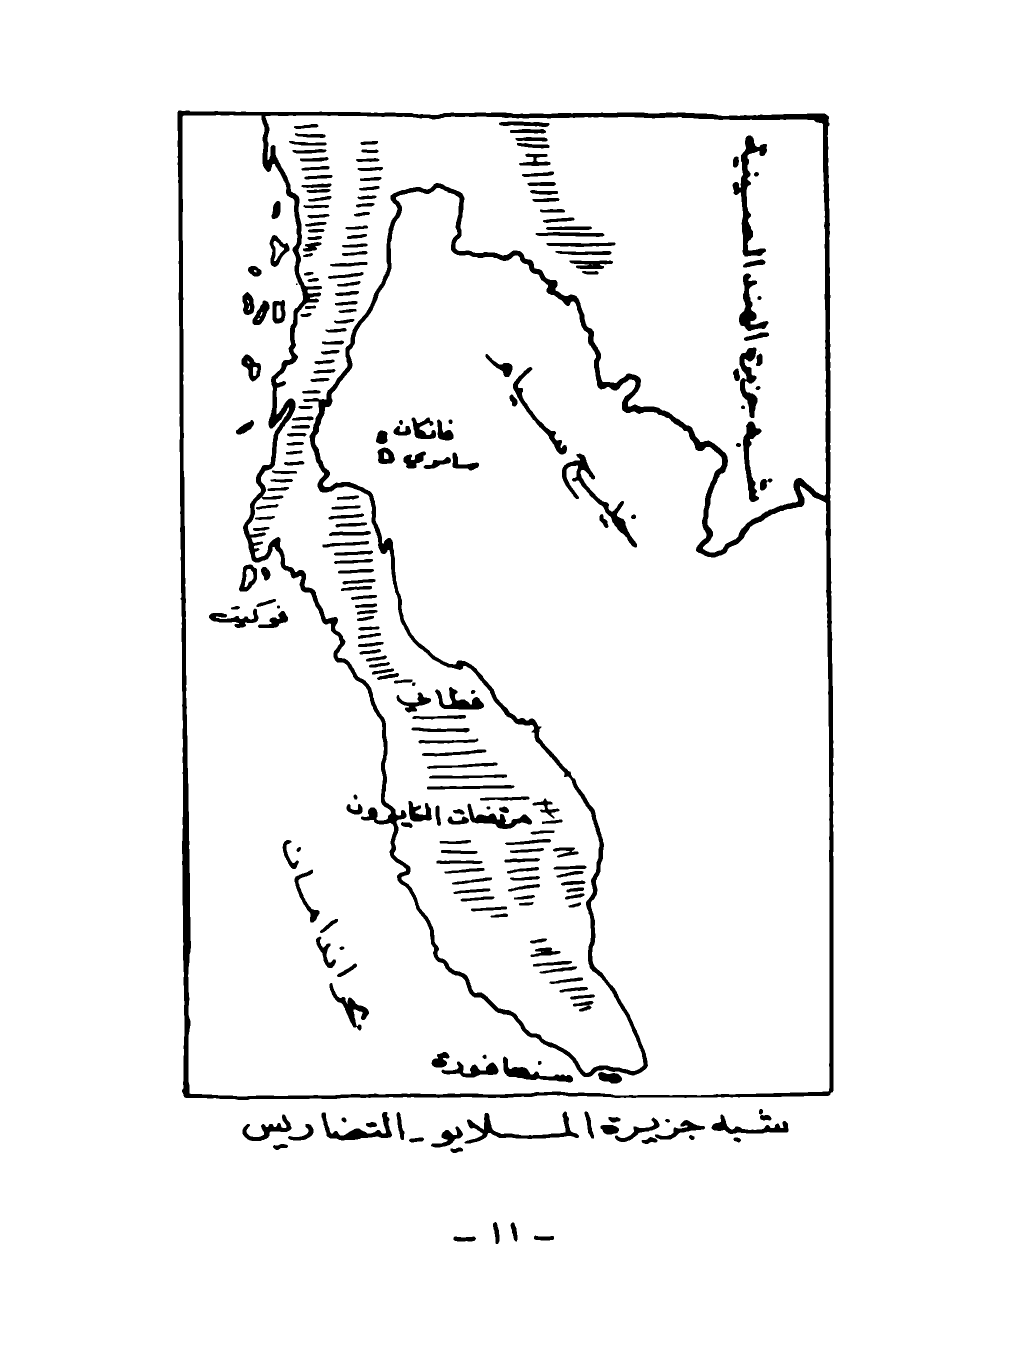 شبه جزيرة الهند الصينية
فانكان
ساموي
خليج سيام
فوكيت
فطاني
مرتفعات الكايرون
بحر اندامان
سنغافورة
شبه جزيرة الملايو - التضاريس
- ١١ -